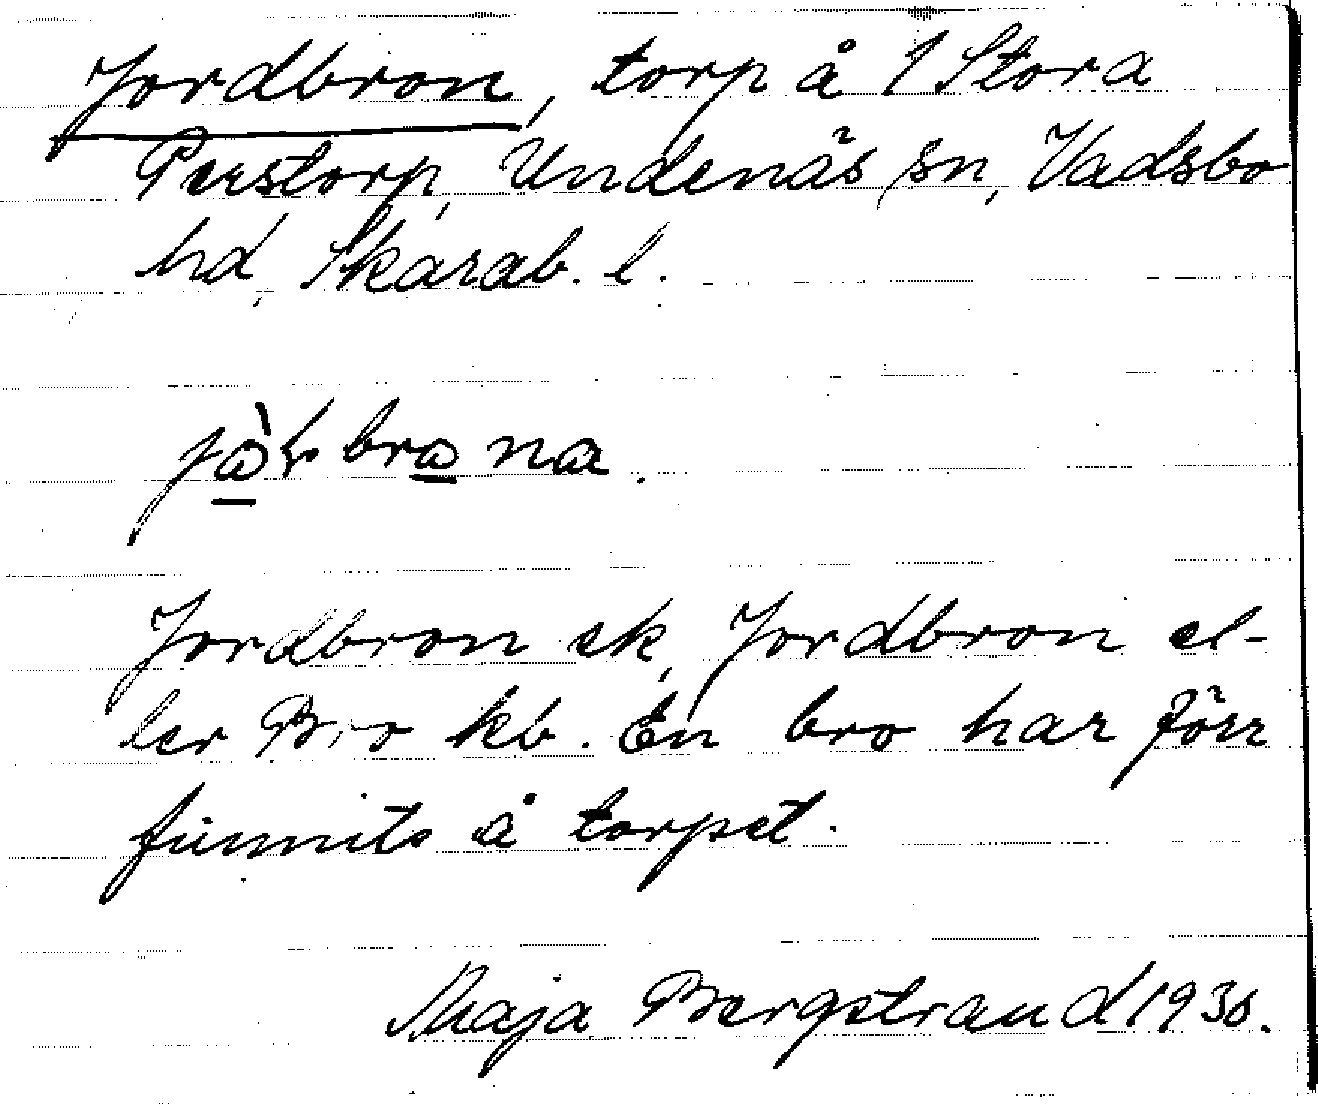 Jordbron, torp å 1 Stora
Perstorp, Undenäs sn, Vadsbo
hd, Skarab. l.
Jordbron ek, Jordbron el-
ler Bro kb. En bro har förr
funnits å torpet.
Maja Bergstrand 1930.